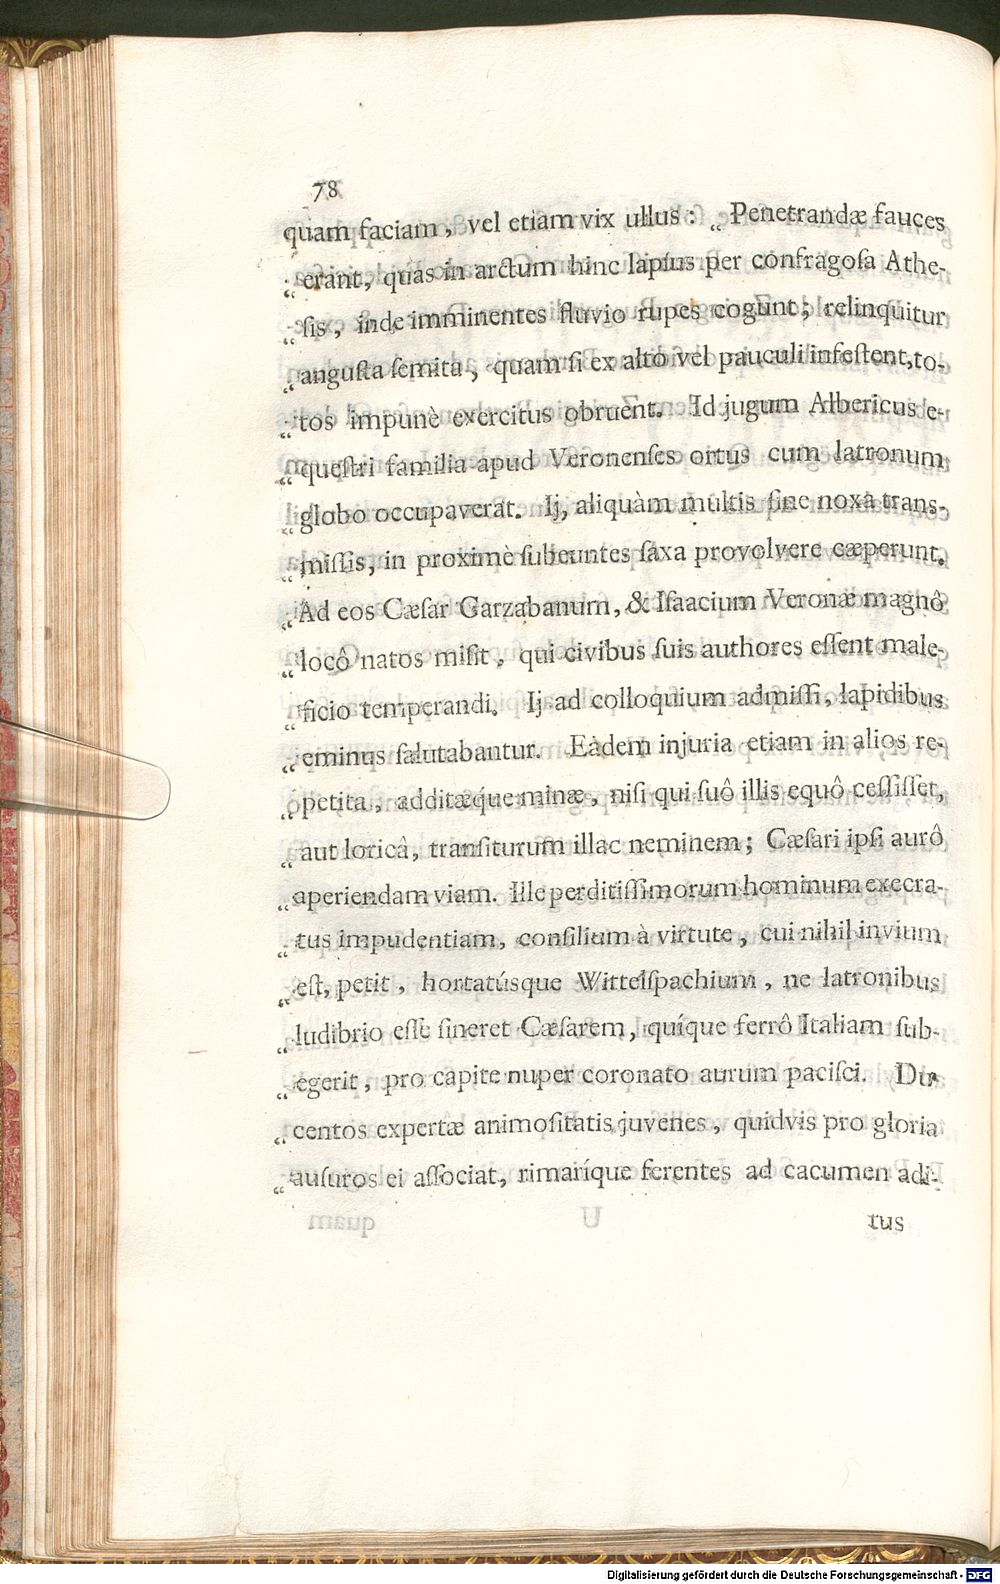 78
quam faciam, vel etiam vix ullus: „ Penetrandæ fauces
„ erant, quas in arctum hinc lapſus per confragoſa Athe-
„ ſis, inde imminentes fluvio rupes cogunt; relinquitur
„ anguſta ſemita, quam ſi ex alto vel pauculi infeſtent, to-
„ tos impunè exercitus obruent. Id jugum Albericus e-
„ queſtri familia apud Veronenſes ortus cum latronum
„ globo occupaverat. Ij, aliquàm multis ſine noxa trans-
„ miſſis, in proximè ſubeuntes ſaxa provolvere cæperunt.
„ Ad eos Cæſar Garzabanum, & Iſaacium Veronæ magnô
„ locô natos miſit, qui civibus ſuis authores eſſent male-
„ ficio temperandi. Ij ad colloquium admiſſi, lapidibus
„ eminus ſalutabantur. Eàdem injuria etiam in alios re-
„ petita, additæq́ue minæ, niſi qui ſuô illis equô ceſſiſſet,
„ aut loricâ, tranſiturum illac neminem; Cæſari ipſi aurô
„ aperiendam viam. Ille perditiſſimorum hominum execra-
„ tus impudentiam, conſilium à virtute, cui nihil invium
„ eſt, petit, hortatúsque Wittelſpachium, ne latronibus
„ ludibrio eſſe ſineret Cæſarem, quíque ferrô Italiam ſub-
„ egerit, pro capite nuper coronato aurum paciſci. Du-
„ centos expertæ animoſitatis juvenes, quidvis pro gloria
„ auſuros ei aſſociat, rimaríque ferentes ad cacumen adi-
tus
Digitalisierung gefördert durch die Deutsche Forschungsgemeinschaft - DFG